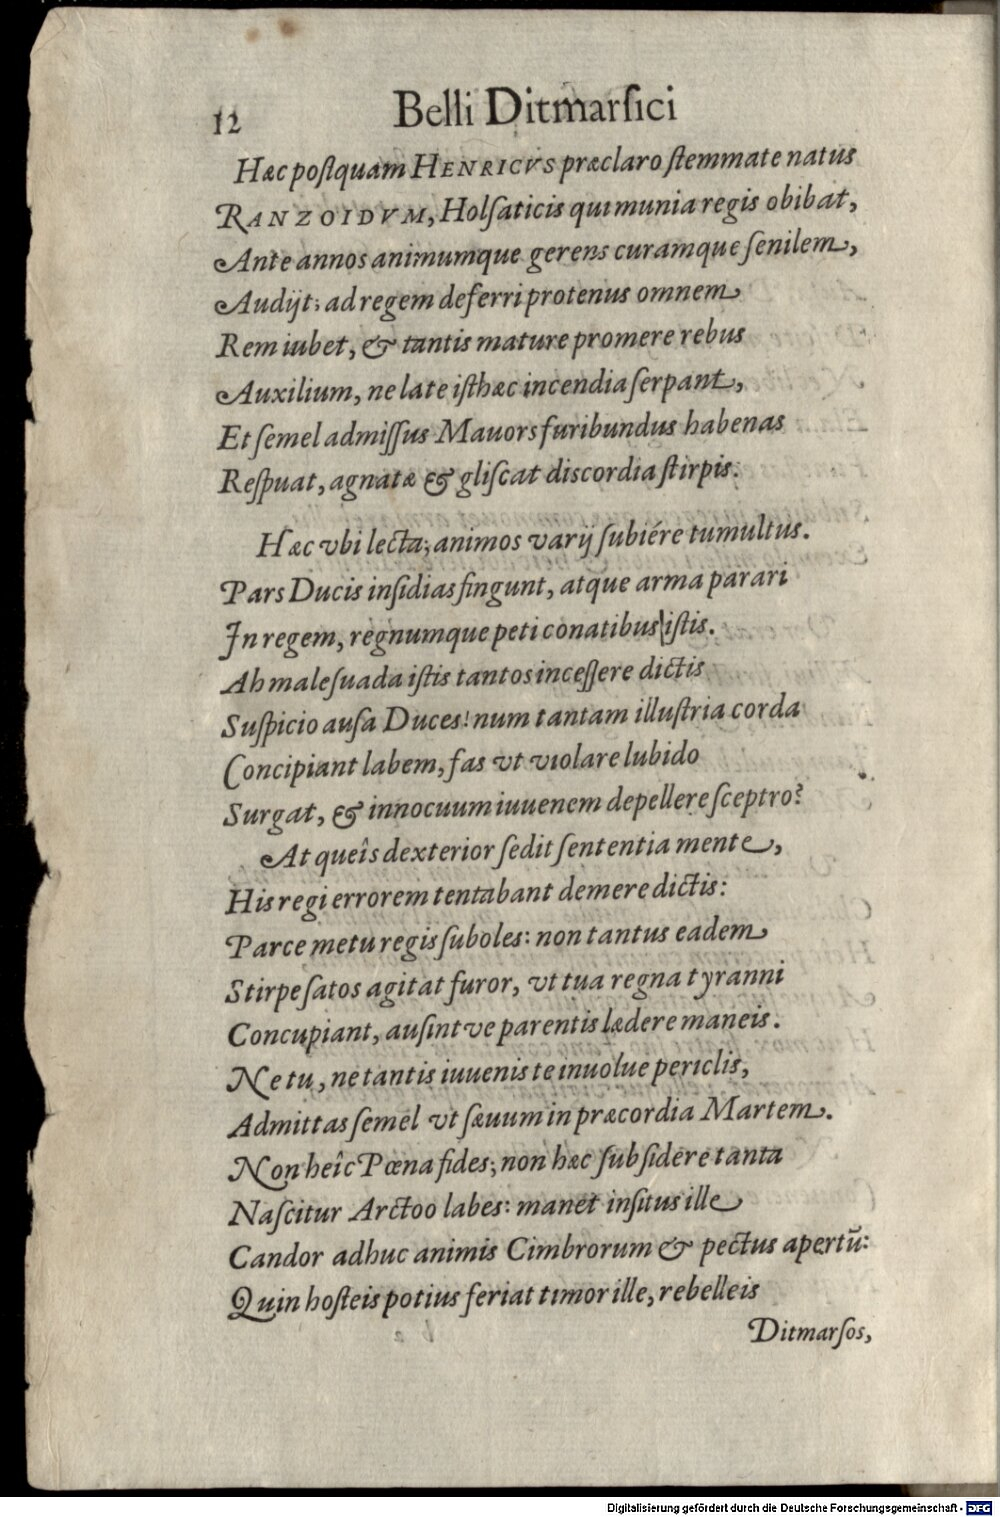 12
Belli Ditmarſici
Hæc poſtquam HENRICVS præclaro ſtemmate natus
RANZOIDVM, Holſaticis qui munia regis obibat,
Ante annos animumque gerens curamque ſenilem,
Audijt; ad regem deferri protenus omnem
Rem iubet, & tantis mature promere rebus
Auxilium, ne late iſthæc incendia ſerpant,
Et ſemel admiſſus Mauors furibundus habenas
Reſpuat, agnatæ & gliſcat discordia ſtirpis.
Hæc vbi lecta; animos varij ſubiére tumultus.
Pars Ducis inſidias fingunt, atque arma parari
In regem, regnumque peti conatibus iſtis.
Ah maleſuada iſtis tantos inceſſere dictis
Suſpicio auſa Duces! num tantam illuſtria corda
Concipiant labem, fas vt violare lubido
Surgat, & innocuum iuuenem depellere ſceptro?
At queîs dexterior ſedit ſententia mente,
His regi errorem tentabant demere dictis:
Parce metu regis ſuboles: non tantus eadem
Stirpe ſatos agitat furor, vt tua regna tyranni
Concupiant, auſint ve parentis lædere maneis.
Ne tu, ne tantis iuuenis te inuolue periclis,
Admittas ſemel vt ſæuum in præcordia Martem.
Non heîc Pœna fides; non hæc ſubſidere tanta
Naſcitur Arctoo labes: manet inſitus ille
Candor adhuc animis Cimbrorum & pectus apertũ:
Quin hoſteis potius feriat timor ille, rebelleis
Ditmarſos,
Digitalisierung gefördert durch die Deutsche Forschungsgemeinschaft - DFG